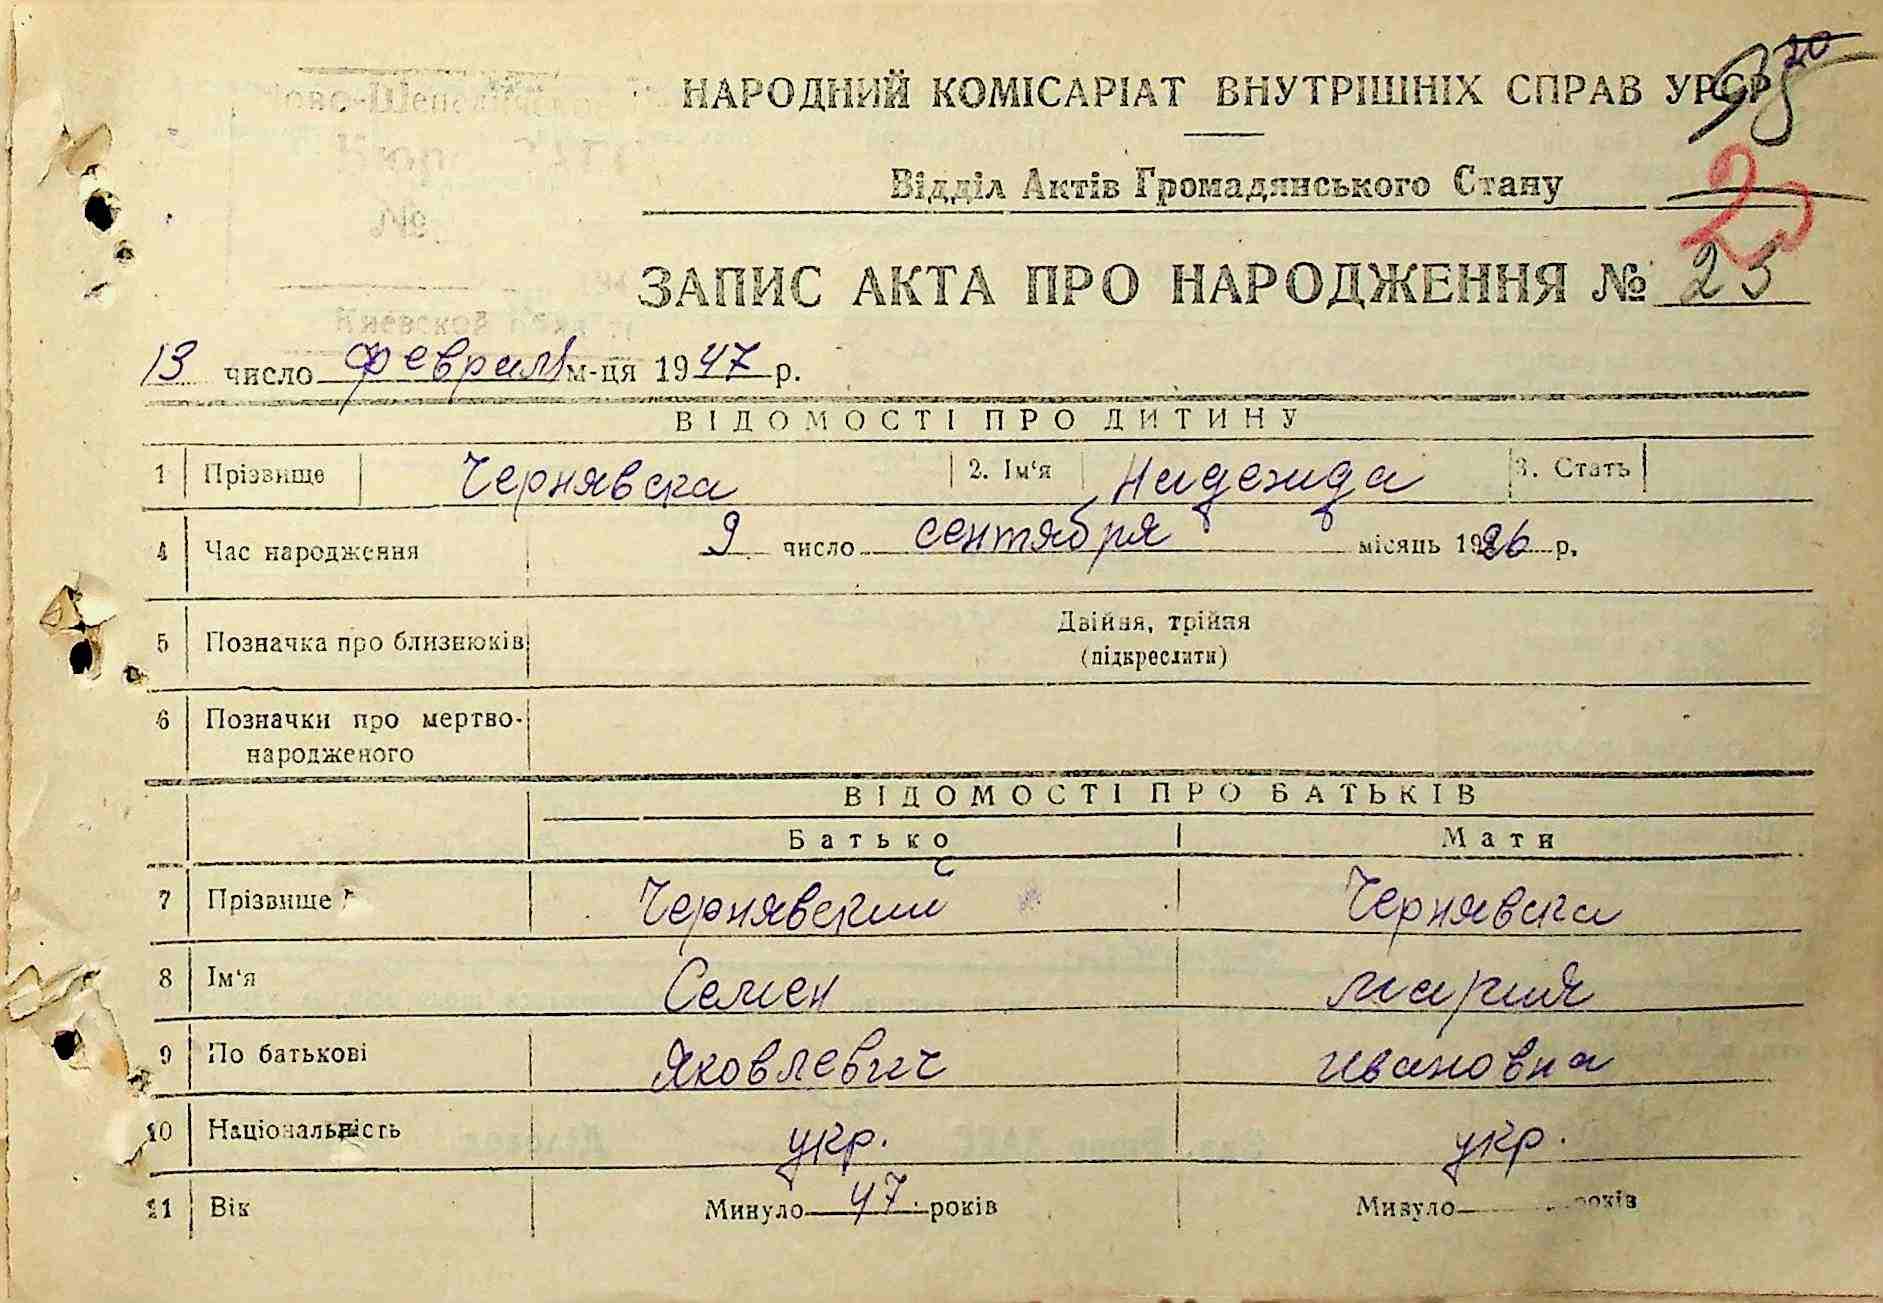 20
98
НАРОДНИЙ КОМІСАРІАТ ВНУТРІШНІХ СПРАВ УРСР
Відділ Актів Громадянського Стану
2
ЗАПИС АКТА ПРО НАРОДЖЕННЯ № 25
13 число февраля м-ця 1947 р.
ВІДОМОСТІ ПРО ДИТИНУ
1 Прізвище Чернявска 2. Ім'я Надежда 3. Стать
4 Час народження 9 число сентября місяць 1926 р.
5 Позначка про близнюків Двійня, трійня
(підкреслити)
6 Позначки про мертво-
народженого
ВІДОМОСТІ ПРО БАТЬКІВ
Батько Мати
7 Прізвище Чернявский Чернявска
8 Ім'я Семен Мария
9 По батькові Яковлевич Ивановна
10 Національність укр. укр.
11 Вік Минуло 47 років Минуло років